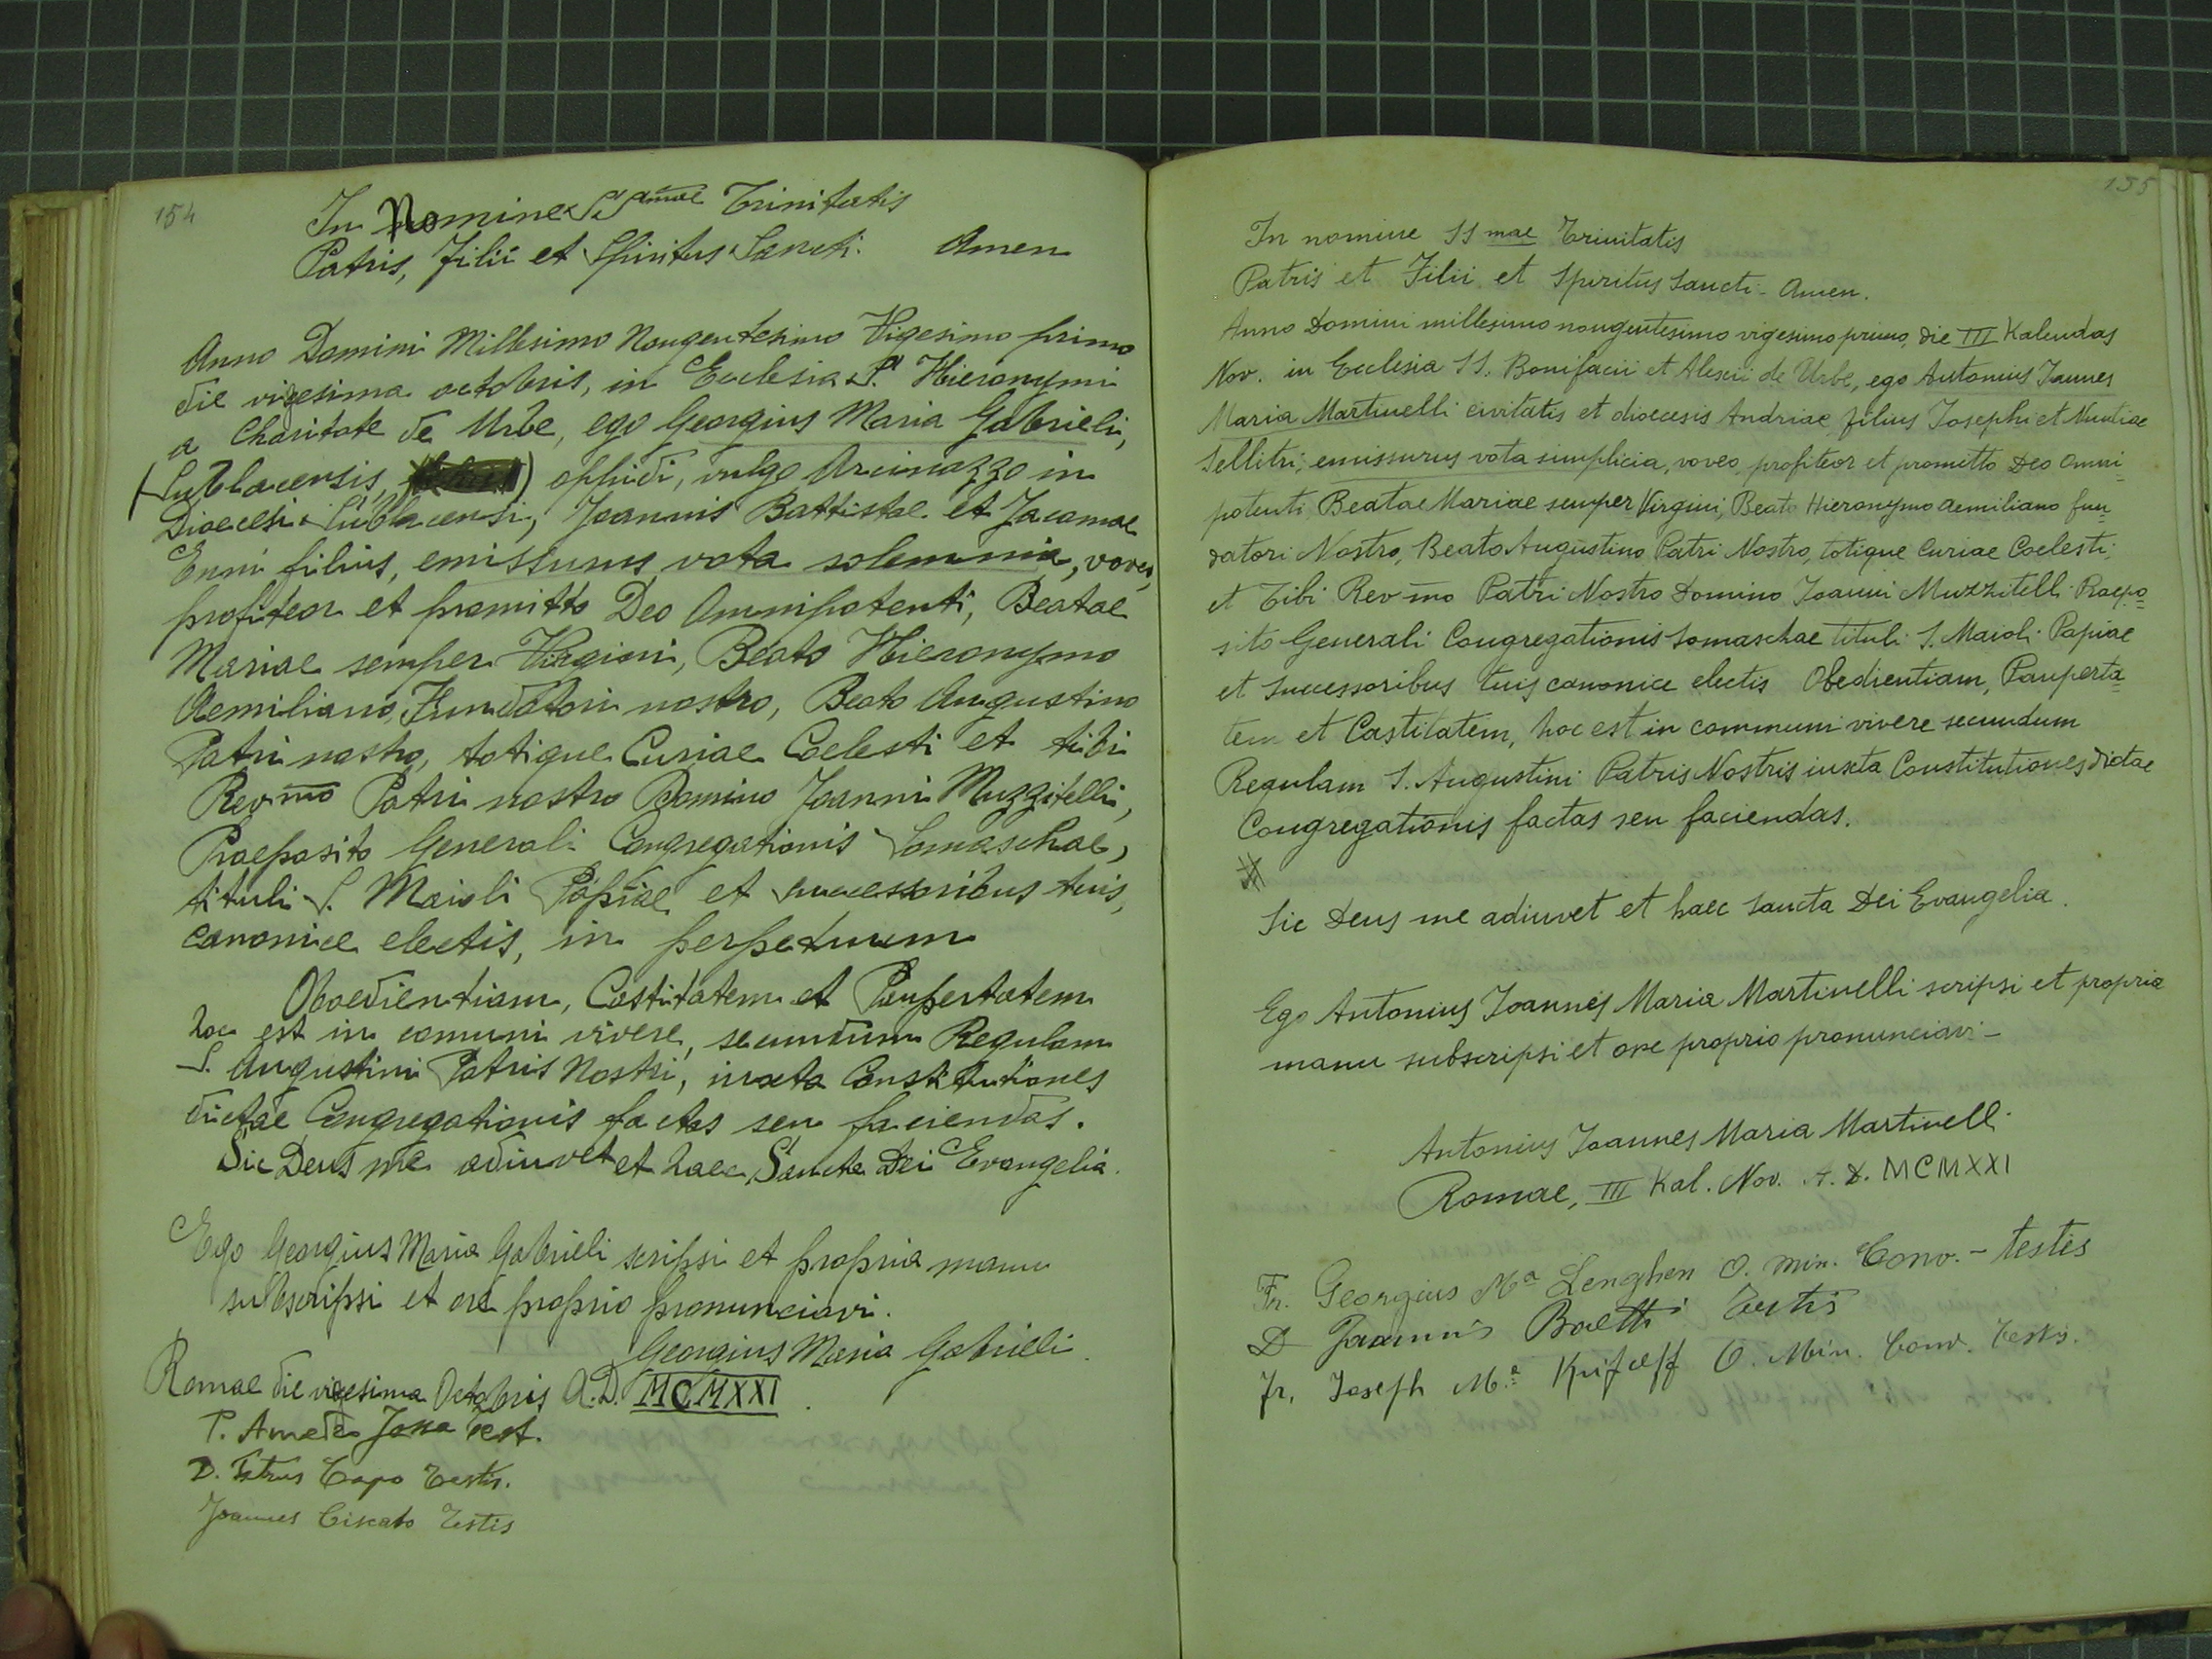 154
In Nomine SSamae Trinitatis
Patris, Filii et Spiritus Sancti. Amen
Anno Domini Millesimo Nongentesimo Vigesimo primo
die vigesima octobris, in Ecclesia S. Hieronymi
a Charitate de Urbe, ego Georgius Maria Gabrieli,
(Sublacensis, ) oppidi, vulgo Arcinazzo in
Dioecesi Sublacensi, Joannis Battistae et Jacomae
Enni filius, emissurus vota solemnia, voveo,
profiteor et promitto Deo Omnipotenti, Beatae
Mariae semper Virgini, Beato Hieronymo
Aemiliano, Fundatori nostro, Beato Augustino
Patri nostro, totique Curiae Coelesti et tibi
Revmo Patri nostro Domino Joanni Muzzitelli,
Praeposito Generali Congregationis Somaschae,
tituli S. Maioli Papiae et successoribus tuis,
canonice electis, in perpetuum
Oboedientiam, Castitatem et Paupertatem
hoc est in comuni vivere, secundum Regulam
S. Augustini Patris Nostri, iuxta Constitutiones
dictae Congregationis factas seu faciendas.
Sic Deus me adiuvet et haec Sancta Dei Evangelia.
Ego Georgius Maria Gabrieli scripsi et propria manu
subscripsi et ore proprio pronunciavi.
Georgius Maria Gabrieli.
Romae die vigesima Octobris A.D. MCMXXI.
P. Amedeo Test.
D. Petrus Capo Testis.
Joannes Ciscato Testis
155
In nomine SS mae Trinitatis
Patris et Filii et Spiritus Sancti - Amen.
Anno Domini millesimo nongentesimo vigesimo primo, die III Kalendas
Nov. in Ecclesia SS. Bonifacii et Alexii de Urbe, ego Antonius Joannes
Maria Martinelli civitatis et dioecesis Andriae filius Josephi et Nuntiae
Sellitri, emissurus vota simplicia, voveo, profiteor et promitto Deo Omni-
potenti, Beatae Mariae semper Virgini, Beato Hieronymo Aemiliano fun=
datori Nostro, Beato Augustino Patri Nostro, totique Curiae Coelesti;
et Tibi Rev mo Patri Nostro Domino Joanni Muzzitelli Praepo=
sito Generali Congregationis Somaschae tituli S. Maioli Papiae
et Successoribus tuis canonice electis Obedientiam, Pauperta=
tem et Castitatem, hoc est in communi vivere secundum
Regulam S. Augustini Patris Nostris iuxta Constitutiones dictae
Congregationis factas seu faciendas.
Sic Deus me adiuvet et haec Sancta Dei Evangelia.
Ego Antonius Joannes Maria Martinelli scripsi et propria
manu subscripsi et ore proprio pronunciavi -
Antonius Joannes Maria Martinelli
Romae, III Kal. Nov. A. D. MCMXXI
Fr. Georgius Ma Lenghen O. Min. Conv. - testis
D Joannis Boetti Testis
Fr. Joseph Ma O. Min. Conv. Testis.